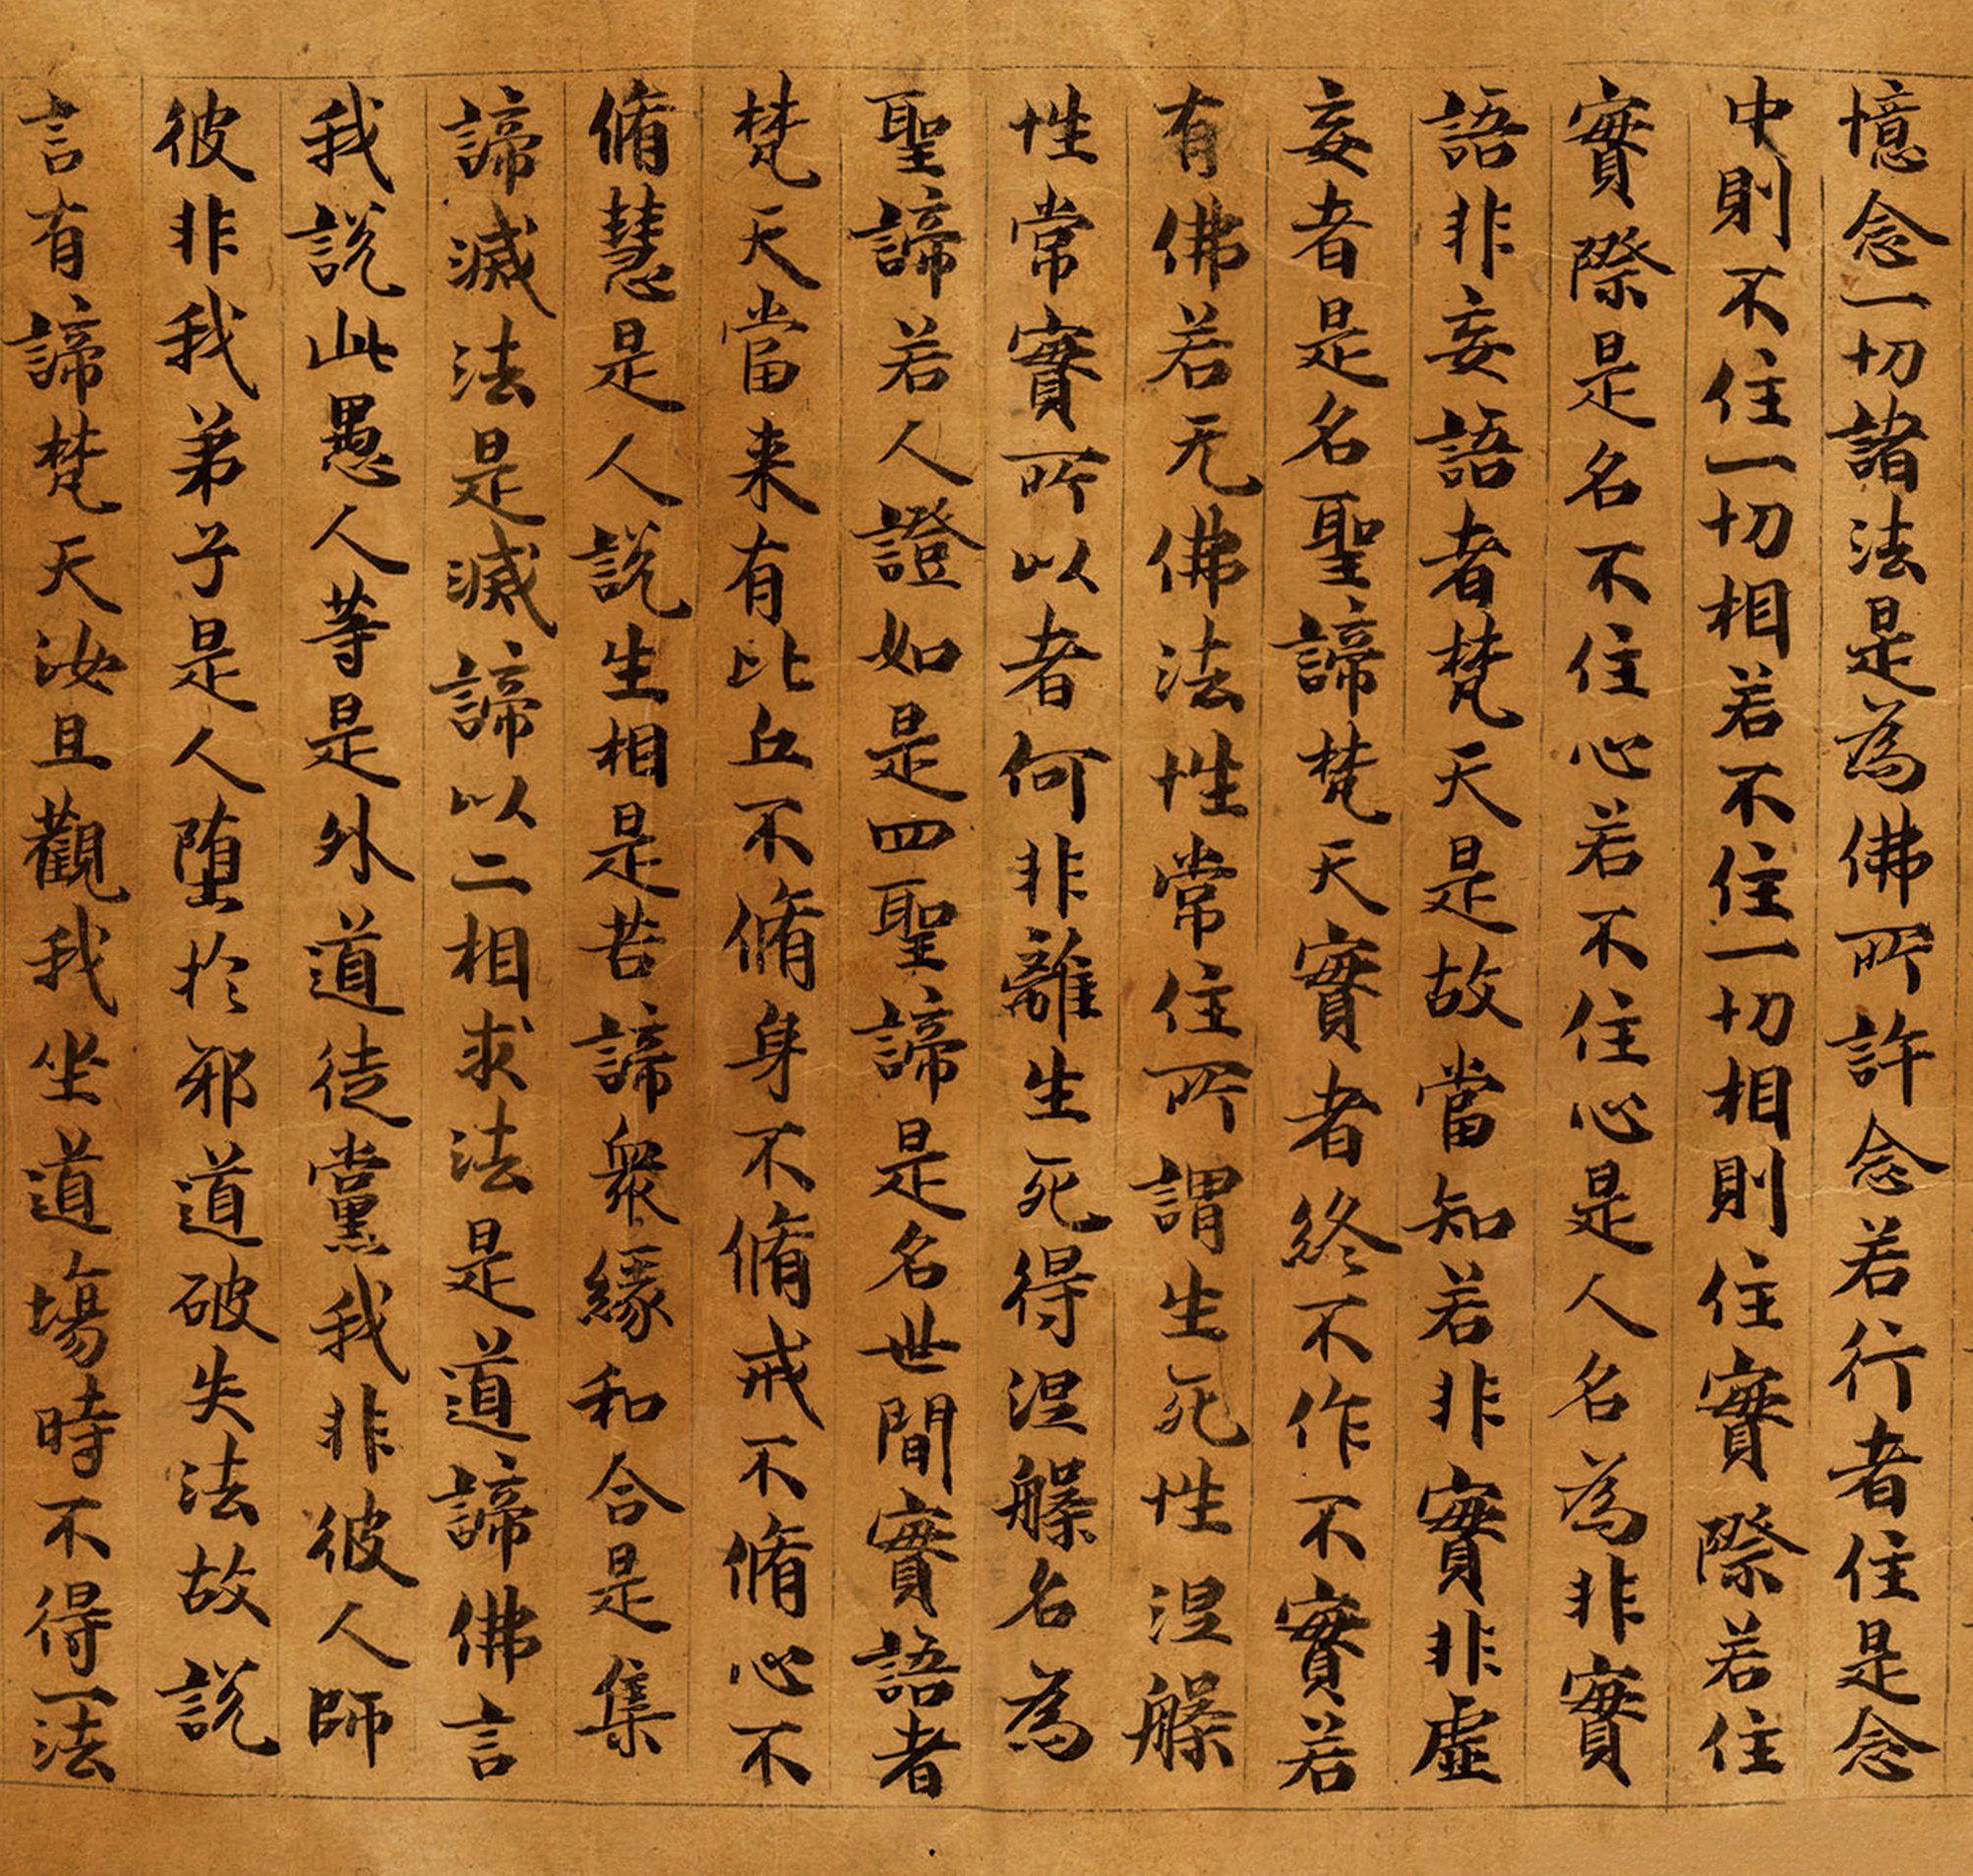 憶念一切諸法是為佛所許念若行者住是念
中則不住一切相若不住一切相則住實際若住
實際是名不住心若不住心是人名為非實
語非妄語者梵天是故當知若非實非虛
妄者是名聖諦梵天實者終不作不實若
有佛若无佛法性常住所謂生死性涅槃
性常實所以者何非離生死得涅槃名為
聖諦若人證如是四聖諦是名世間實語者
梵天當来有比丘不脩身不脩戒不脩心不
脩慧是人說生相是苦諦眾緣和合是集
諦滅法是滅諦以二相求法是道諦佛言
我說此愚人等是外道徒黨我非彼人師
彼非我弟子是人墮於邪道破失法故說
言有諦梵天汝且觀我坐道場時不得一法